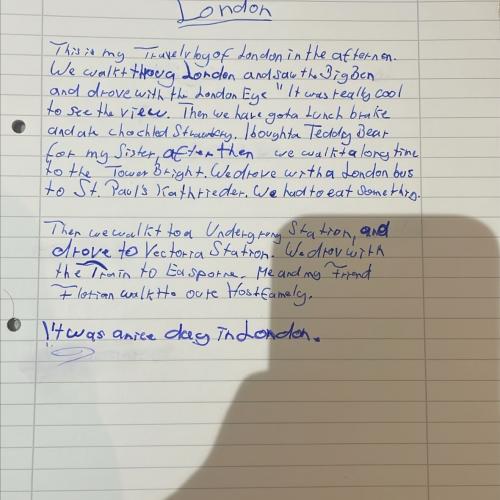 London
This is my Travelvbyof London in the afternon.
We walkt thoug London and saw the Big Ben
and drove with the London Eye "It was really cool
to see the view. Then we have gota Lunch brake
and ate chochled Strawberry. I boughta Teddy Bear
for my Sister, after then we walkt a long time
to the Tower Bright. We drove with a London bus
to St. Paul's Kathrieder. We had to eat something.
Then we walkt to a Undergrong Station, and
drove to Vectoria Station. We drov with
the Train to Easporne. Me and my Friend
Florian walkt to oure Host Famely.
It was a nice day in London.